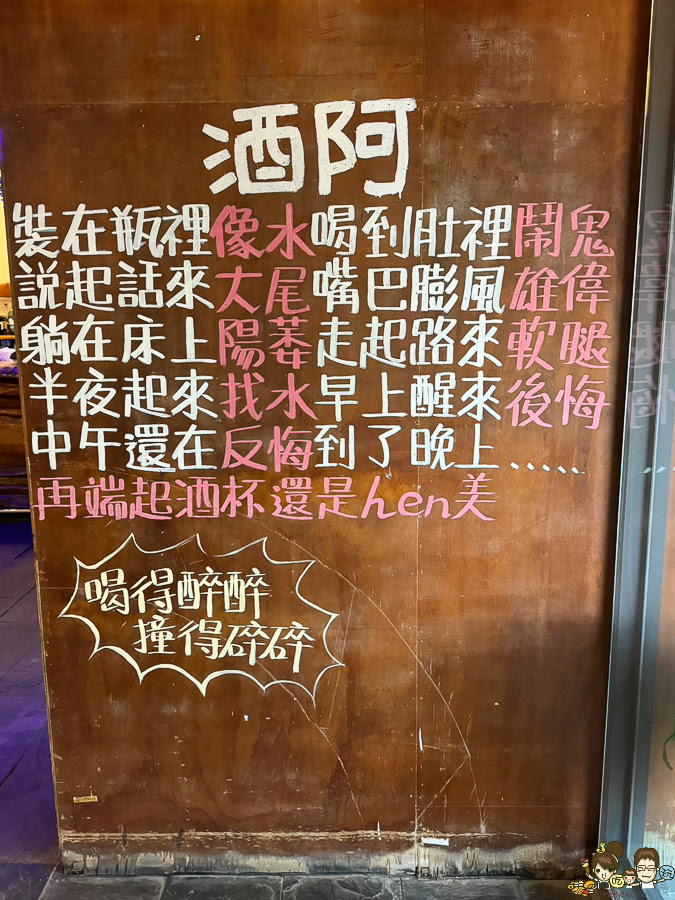 酒阿
裝在瓶裡像水喝到肚裡鬧鬼
說起話來大尾嘴巴膨風雄偉
躺在床上陽萎走起路來軟腿
半夜起來找水早上醒來後悔
中午還在反悔到了晚上、、、、、
再端起酒杯還是hen美
喝得醉醉
撞得碎碎